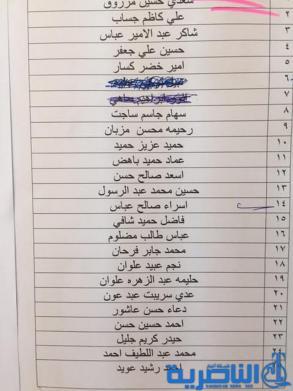 سعدي حسين مرزوق
٢ علي كاظم جساب
٣ شاكر عبد الامير عباس
٤ حسين علي جعفر
٥ امير خضر كسار
٦
٧
٨ سهام جاسم ساجت
٩ رحيمه محسن مزبان
١٠ حميد عزيز حميد
١١ عماد حميد باهض
١٢ اسعد صالح حسن
١٣ حسين محمد عبد الرسول
١٤ اسراء صالح عباس
١٥ فاضل حميد شافي
١٦ عباس طالب مضلوم
١٧ محمد جابر فرحان
١٨ نجم عبيد علوان
١٩ حليمه عبد الزهره علوان
٢٠ عدي سريبت عبد عون
٢١ دعاء حسن عاشور
٢٢ احمد حسين حسن
٢٣ حيدر كريم جليل
٢٤ محمد عبد اللطيف احمد
احمد رشيد عويد
الناصرية